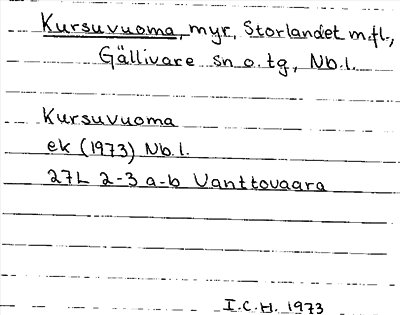 Kursuvuoma, myr, Storlandet m.fl.,
Gällivare sn o. tg, Nb.l.
Kursuvuoma
ek (1973) Nb.l.
27L 2-3 a-b Vanttovaara
I.C.H. 1973